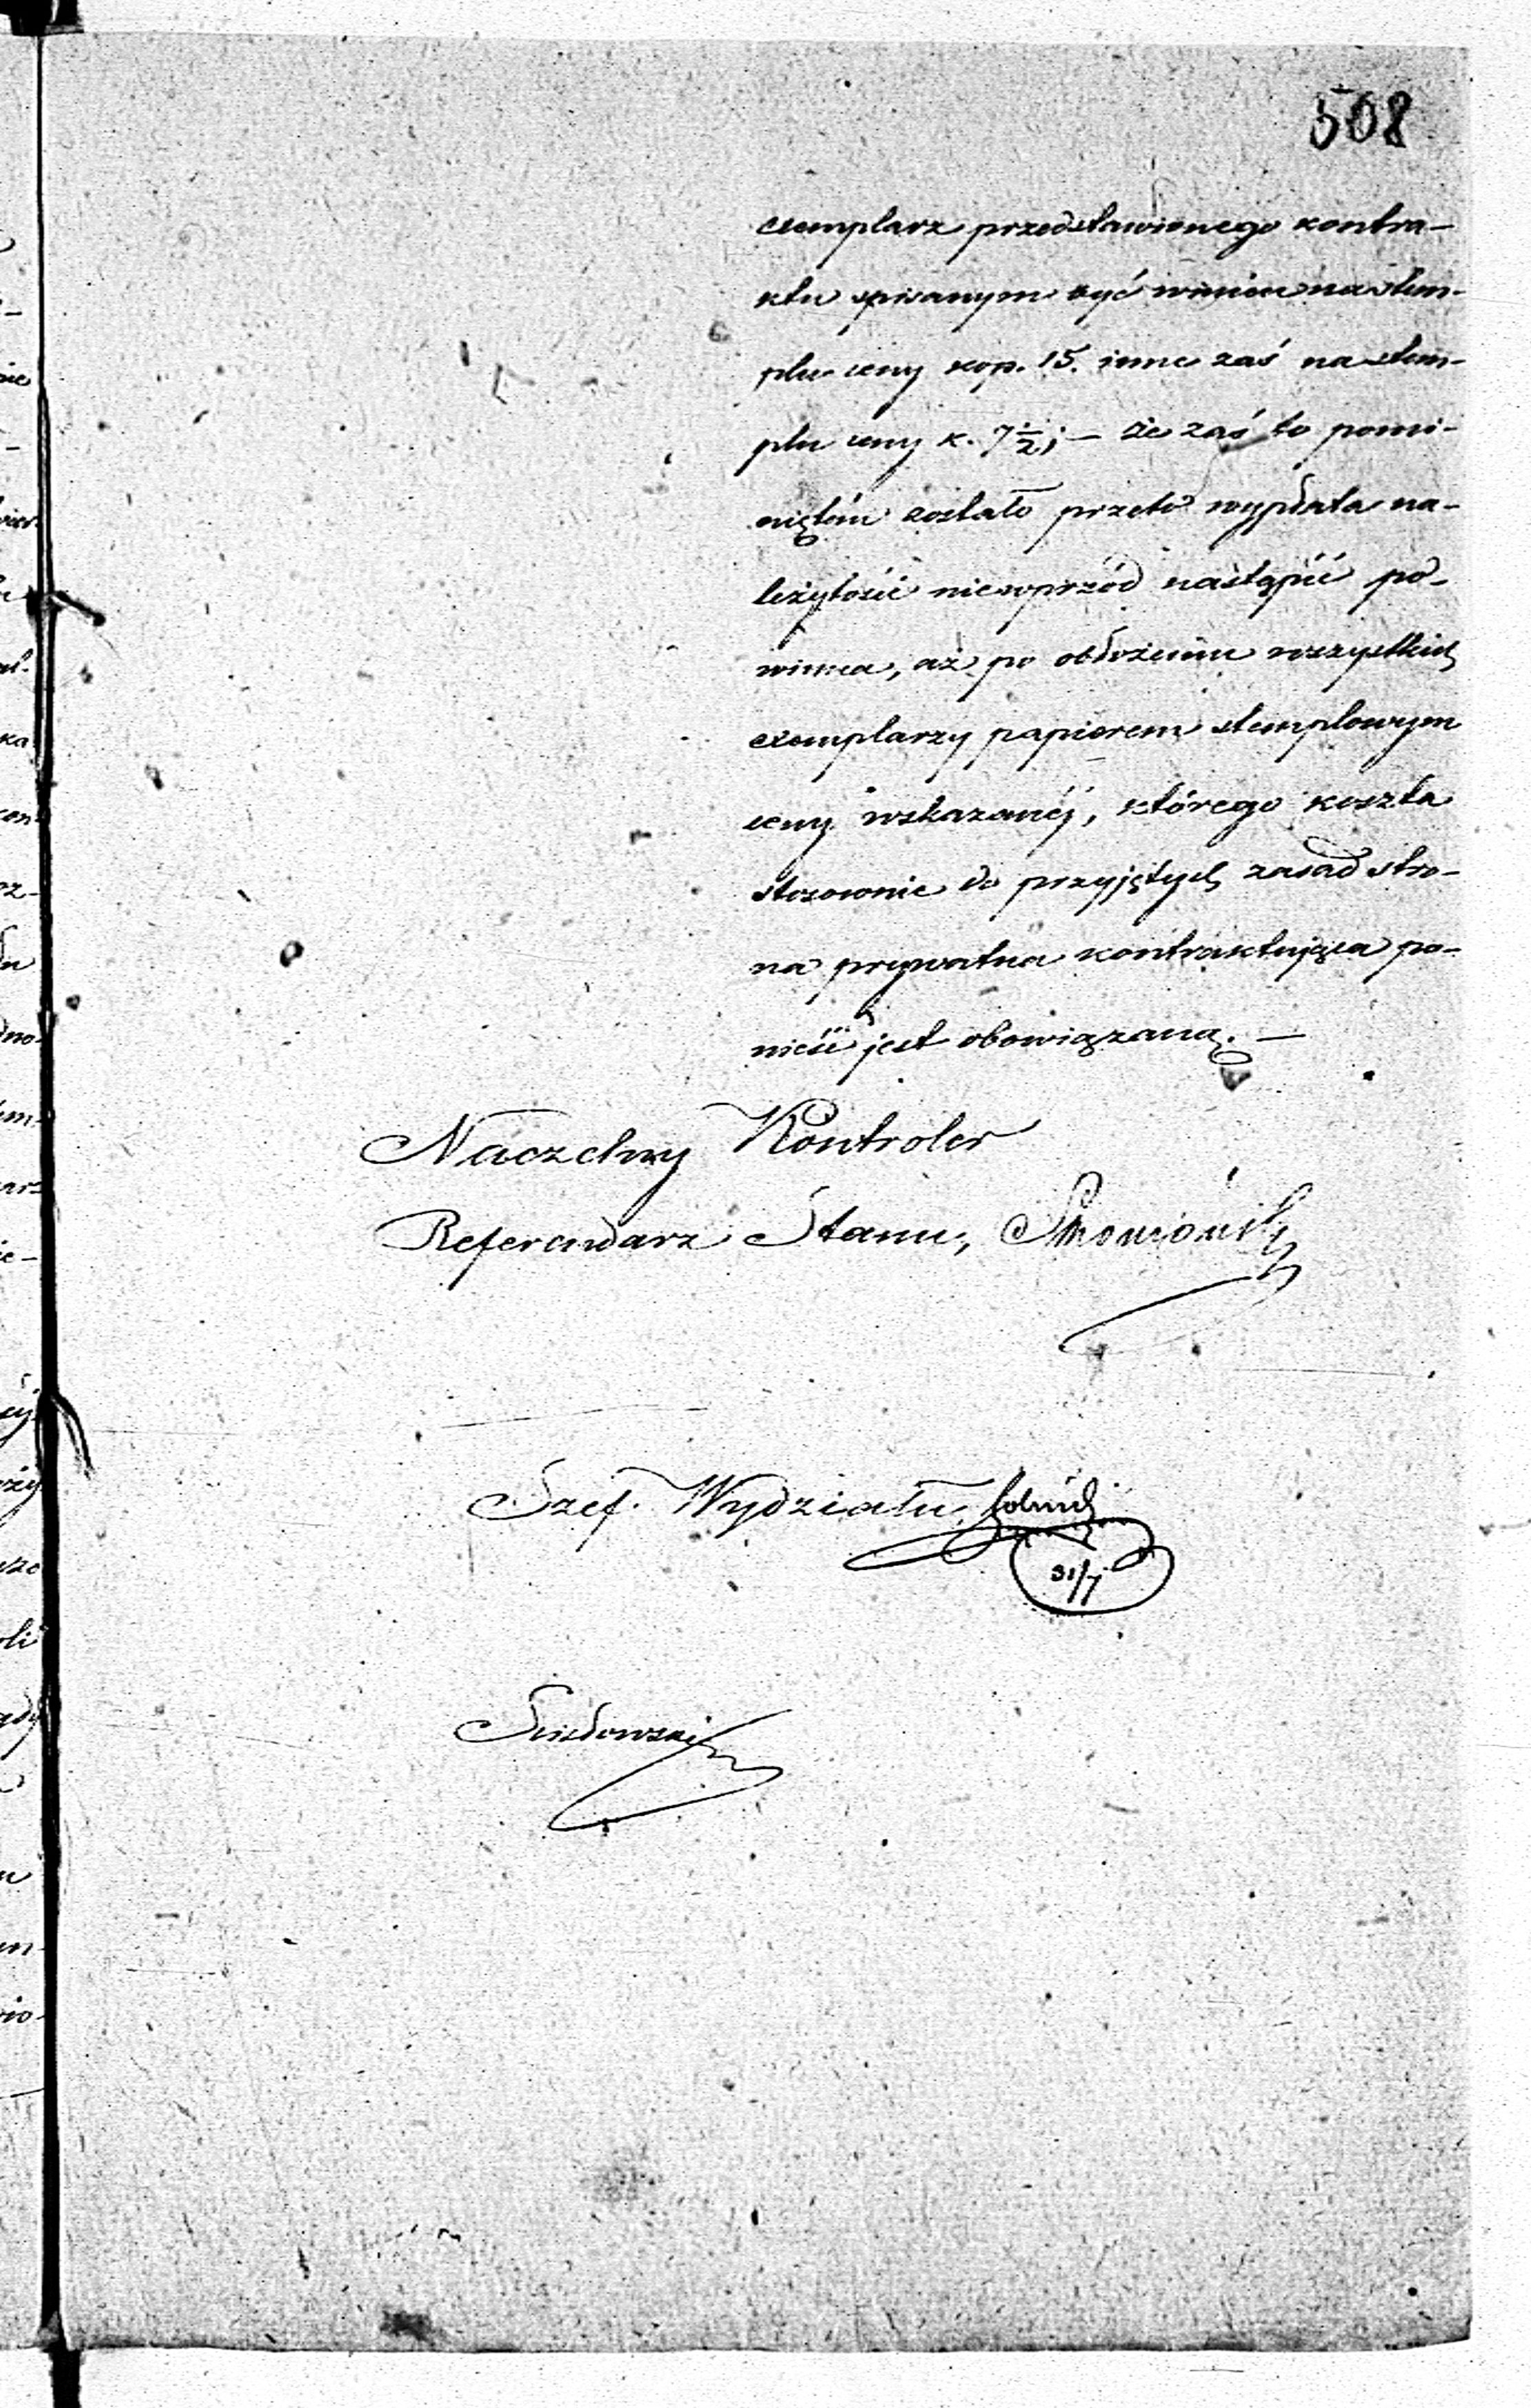 508
exemplarz przedstawionego kontra-
ktu spisanym być winien na stem-
plu ceny kop. 15. inne zaś na stem-
plu ceny k. 7½; — że zaś to pomi-
niętém zostało przeto wypłata na-
leżytości nie wprzód nastąpić po-
winna, aż po obłożeniu wszystkich
exemplarzy papierem stemplowym
ceny wskazanéj, którego koszta
stosownie do przyjętych zasad stro-
na prywatna kontraktująca po-
nieść jest obowiązaną. —
Naczelny Kontroler
Referendarz Stanu,
Szef Wydziału
31/7